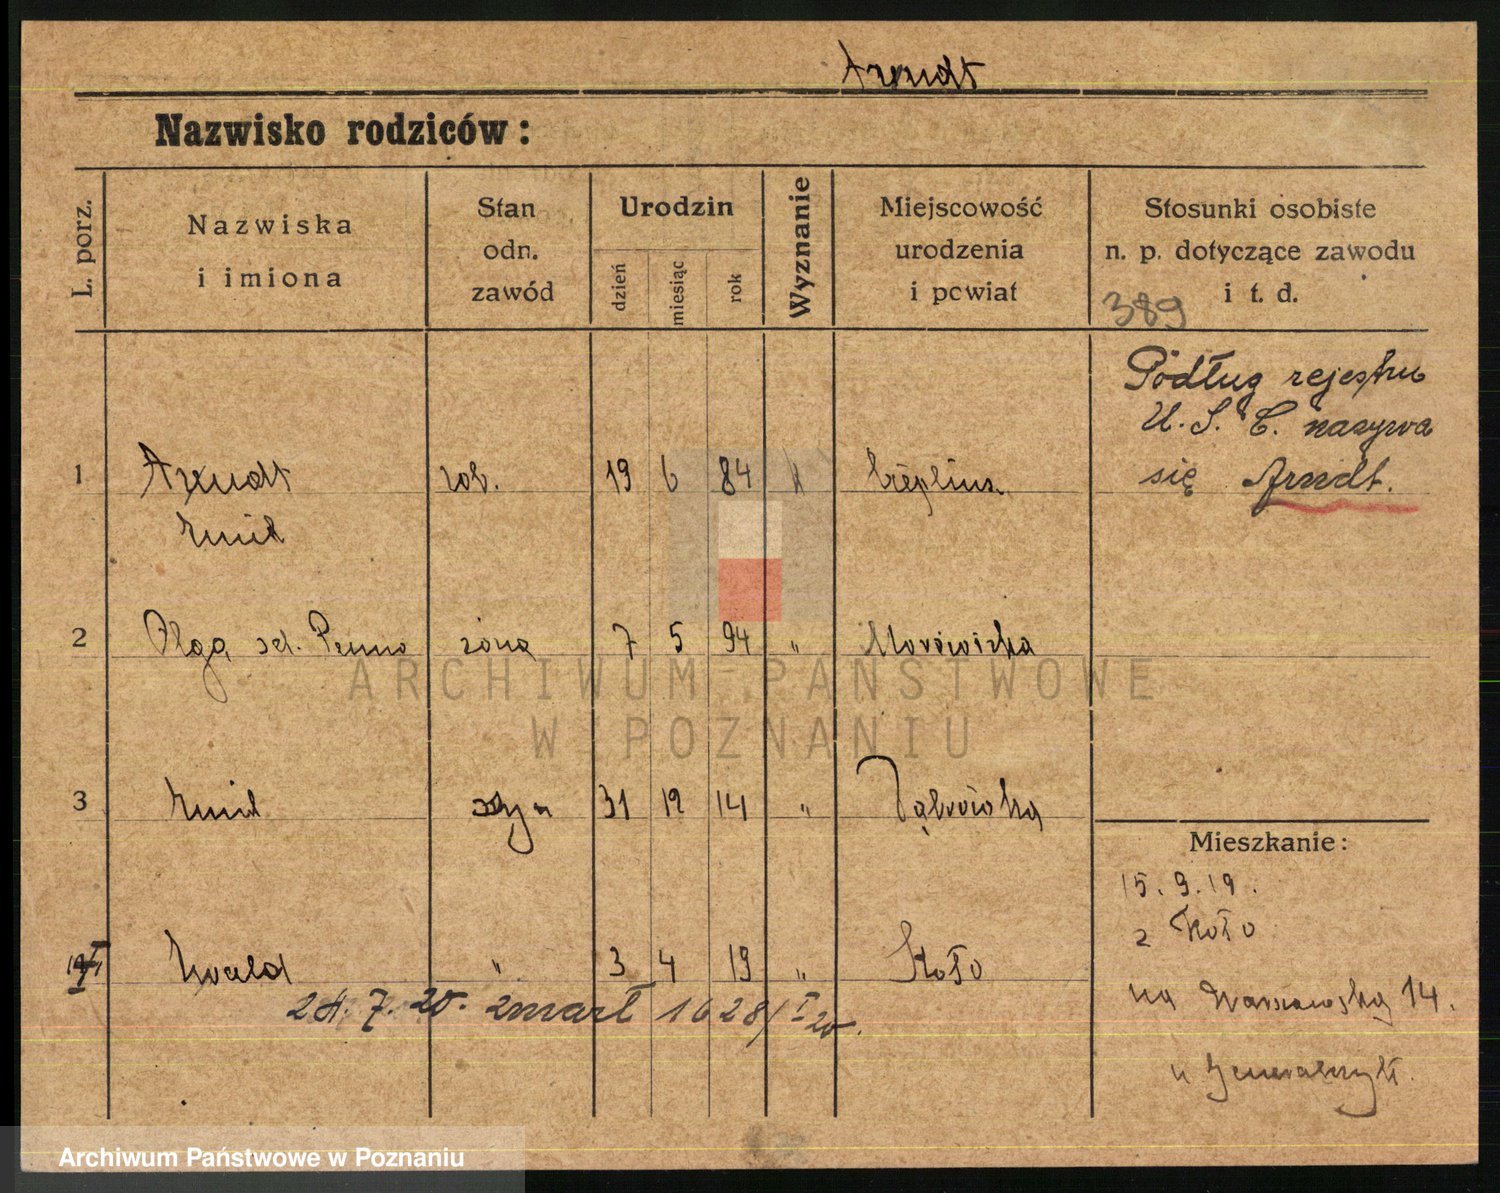 Arndt
Nazwisko rodziców:
L. porz.
Nazwiska
i imiona
Stan
odn.
zawód
Urodzin
dzień
miesiąc
rok
Wyznanie
Miejscowość
urodzenia
i powiat
Stosunki osobiste
n. p. dotyczące zawodu
i t. d.
389
Podług rejestru
U. S. C. nazywa
się Arndt.
1 Arndt rob. 19 6 84
Emil
2 Olga żona 7 5 94 "
3 Emil syn 31 12 14 " Dąbrówka
Ewald " 3 4 19 " Koło
24. 7. 20. zmarł 1628/I 20.
Mieszkanie:
15. 9. 19.
z Koło
na Warszawską 14.
ARCHIWUM PAŃSTWOWE
W POZNANIU
Archiwum Państwowe w Poznaniu